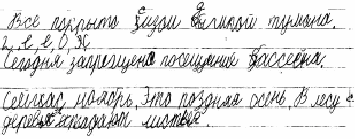 Все покрыто сизой дымкой тумана.
2, е, е, о, ж
Сегодня запрещено посещение бассейна.
Сейчас ноябрь, это поздняя осень, в лесу с
деревьев опадают листья.